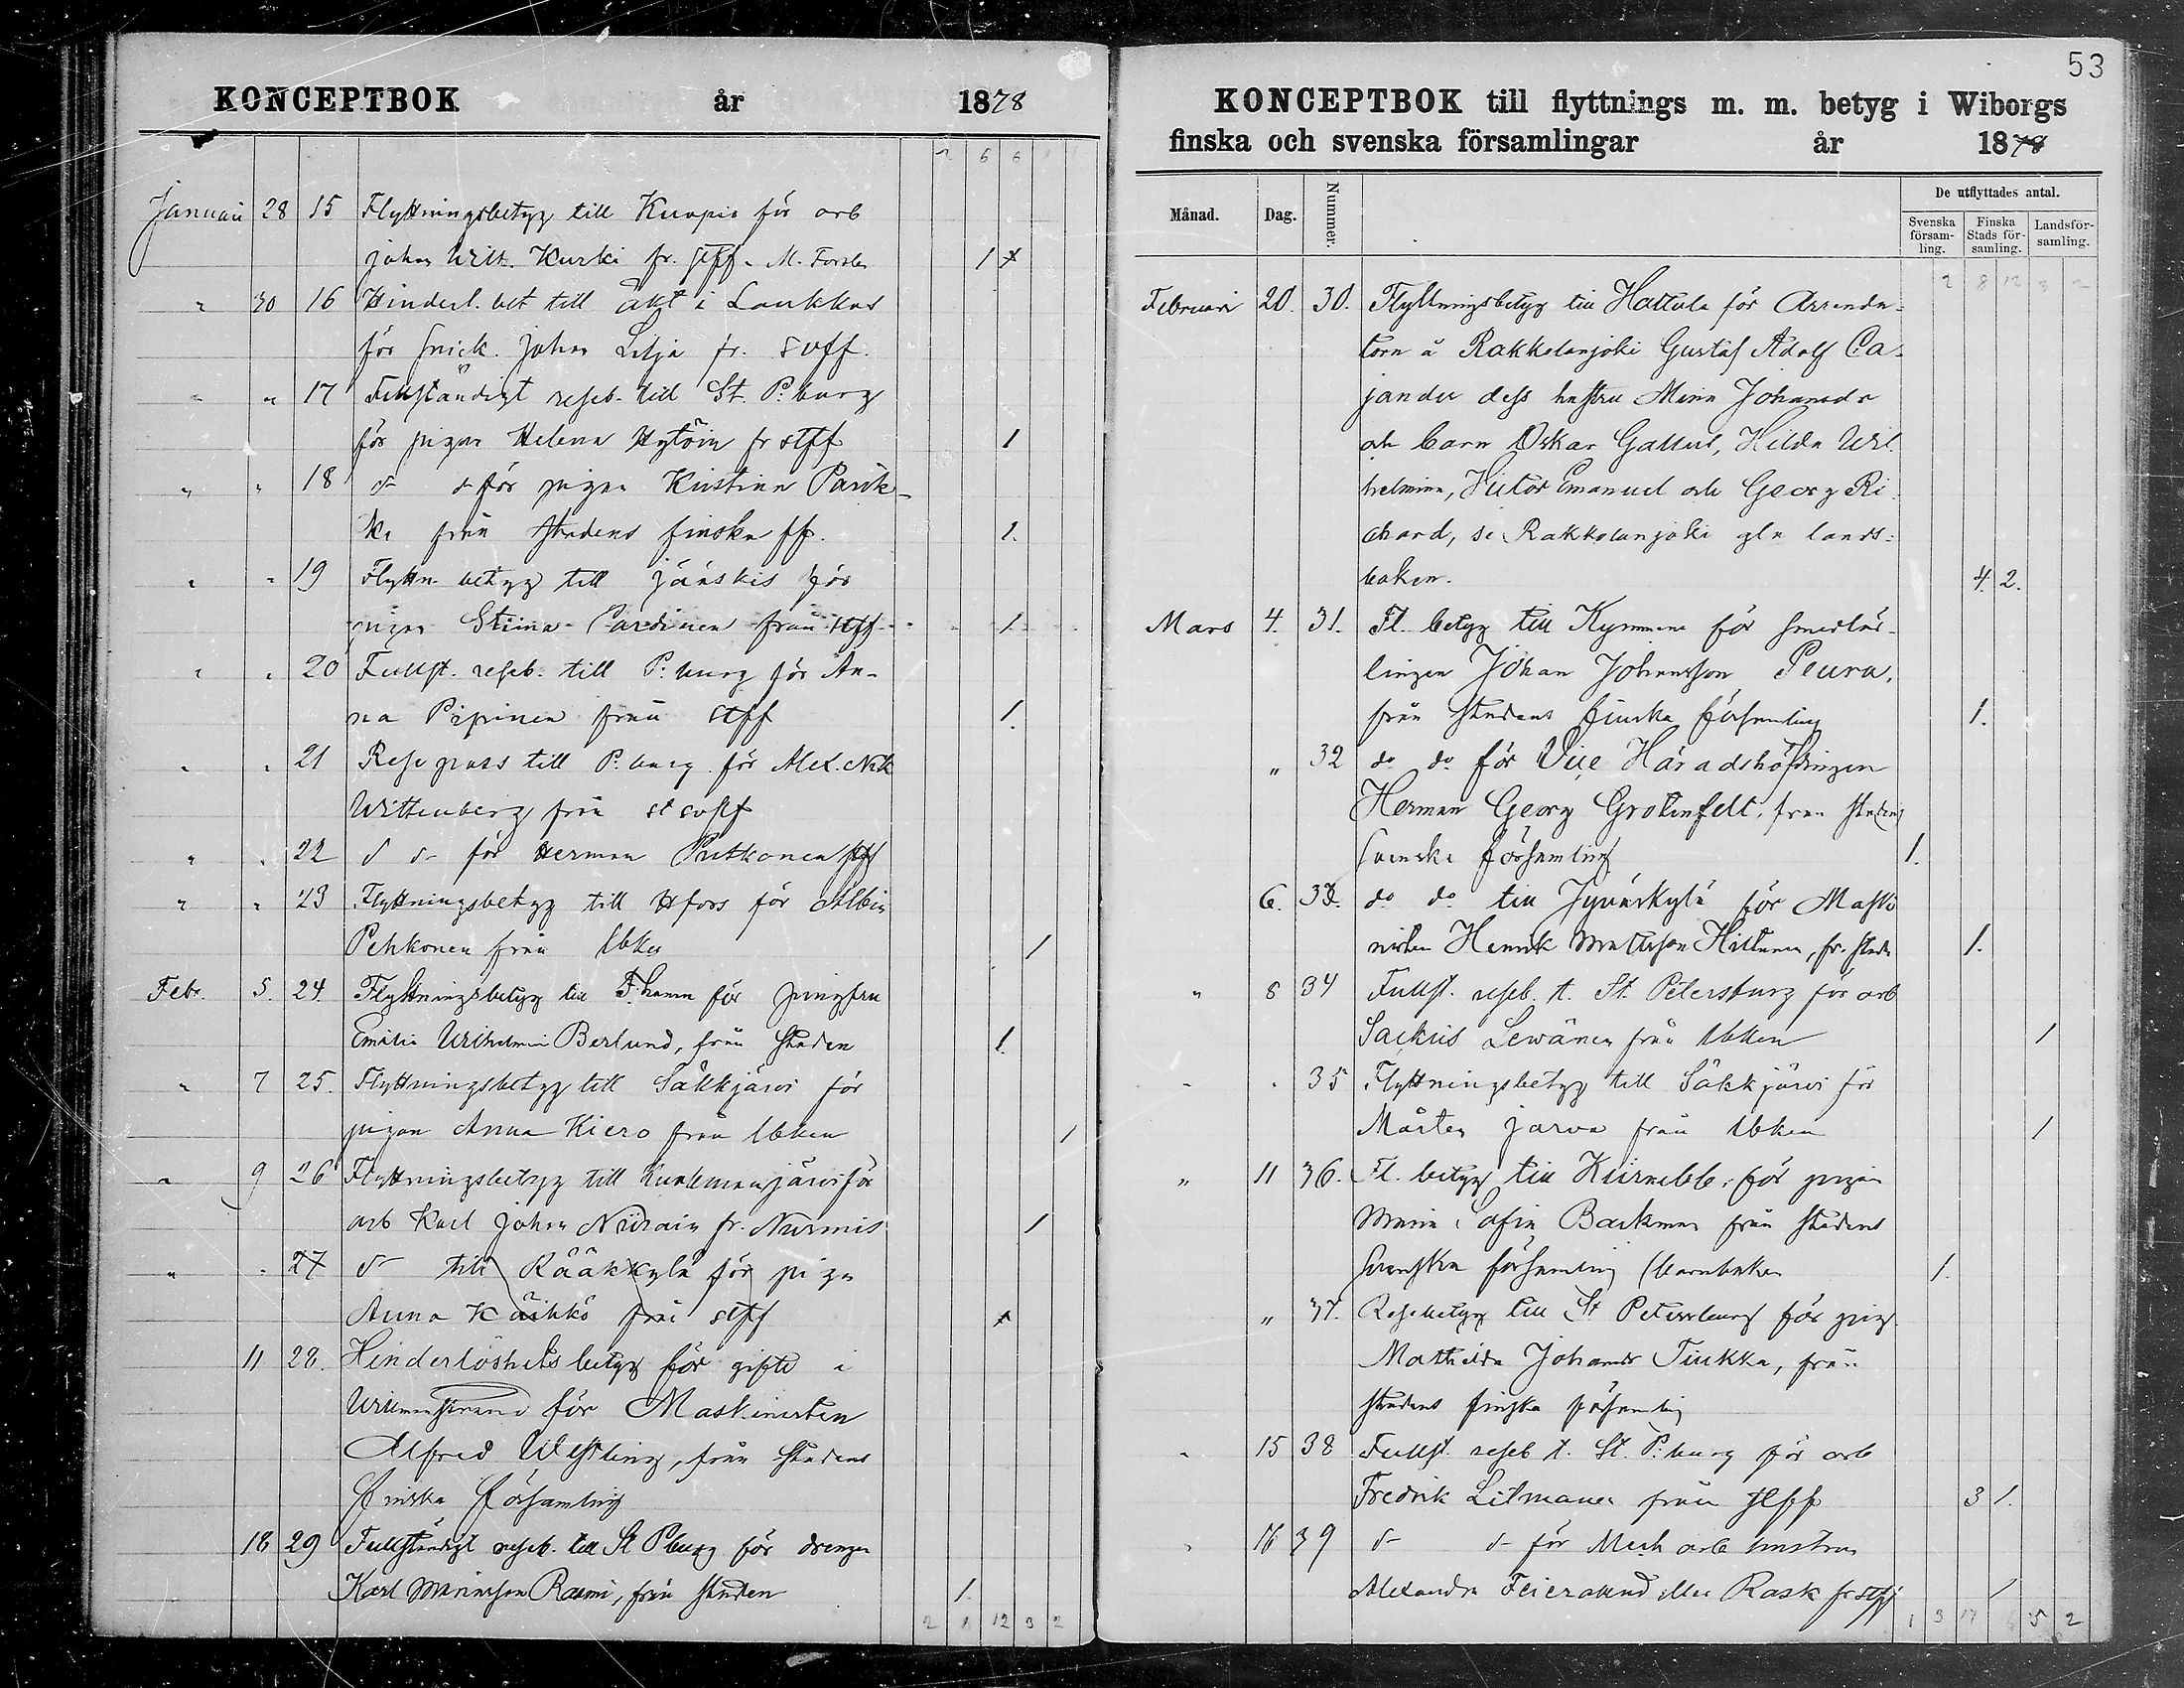 KONCEPTBOK år 1878
Januari 28 15 Flyttningsbetyg till Kuopio för arb
Johan Wilh. Kurki fr. stff. M. Forsler 1
" 30 16 Hinderl. bet till äkt i Laukkas
för snick. Johan Lilja fr. svff.
" " 17 Fullständigt reseb. till St. P:burg
för pigan Helena Hytöin fr stff 1
" " 18 d d för pigan Kristina Parik-
ka från stadens finska ff. 1.
" " 19 Flyttn betyg till Jääskis för
pigan Stiina Pardinen från stff 1.
" " 20 Fullst. reseb. till P:burg för An-
na Pipinen från stff 1.
" " 21 Resepass till P.burg för Alex. Nik
Wittenberg från st svff
" " 22 d d för Herman Putkonen stff
" " 23 Flyttningsbetyg till Hfors för Albin
Pehkonen från lbka 1
Febr. 5. 24. Flyttningsbetyg till F.hamn för jungfru
Emilia Wilhelmin Berlund, från staden 1.
" 7 25. Flyttningsbetyg till Säkkjärvi för
pigan Anna Kiero från lbken 1
" 9 26 Flyttningsbetyg till för
arb Karl Johan fr. Nurmis 1
" " 27 d till Rääkkylä för pigan
Anna Käikkö från stff
11 28. Hinderlöshets betyg för gifte i
Willmanstrand för Maskinisten
Alfred Westling, från stadens
finska församling
18 29 Fullständigt reseb. till St Pburg för drengen
Karl Rami, från staden 1.
2 1 12 3 2
53
KONCEPTBOK till flyttnings m. m. betyg i Wiborgs
finska och svenska församlingar år 1878
Månad. Dag. Nummer. De utflyttades antal.
Svenska församling. Finska Stads församling. Landsförsamling.
2 8 12 3 2
Februari 20. 30. Flyttningsbetyg till Hattula för Arrenda-
torn å Rakkolanjoki Gustaf Adolf Ca-
jander dess hustru Mina Johansdr
och barn Oskar Gallus, Hilda Wil
helmina, Victor Emanuel och Georg Ri
chard, se Rakkolanjoki gla lands-
boken. 4. 2.
Mars 4. 31. Fl. betyg till Kymmene för smedlär-
lingen Johan Johansson Peura,
från stadens finska församling 1.
" 32 do do för Vice Häradshöfdingen
Herman Georg Grotenfelt, från stadens
svenska församling 1.
6. 33. do do till Jyväskylä för Maski
nisten Henrik Mattsson Hiltunen, fr. staden 1.
" 8 34 Fullst. reseb. t. St. Petersburg för arb
Sackris Lewänen från lbken 1
" " 35 Flyttningsbetyg till Säkkjärvi för
Mårten Jarva från lbken 1
" 11 36. Fl. betyg till för pigan
Maria Sofia Backman från stadens
svenska församling (barnboken 1.
" 37. Resebetyg till St Petersburg för pig
Mathilda Johansdr Tiukka, från
stadens finska församling
" 15 38 Fullst. reseb t. St. P:burg för arb
Fredrik Litmanen från stff 3 1.
" 16 39 d d för Mech arb hustrun
Alexandra Feierabend eller Rask fr stff 1
1 3 17 6 5 2